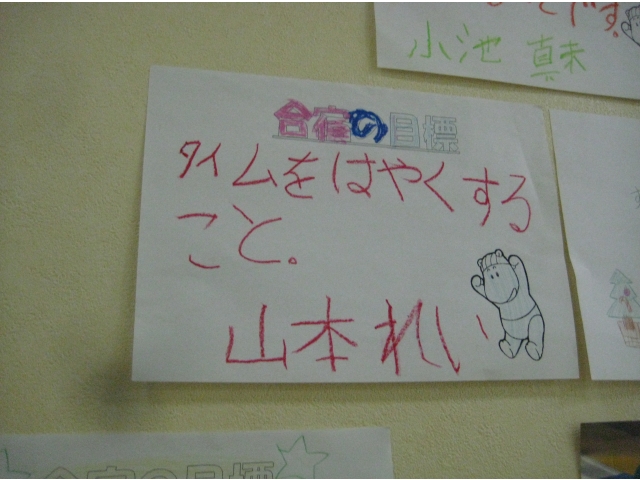 です。
小池 真未
合宿の目標
タイムをはやくする
こと。
山本れい
合宿の目標